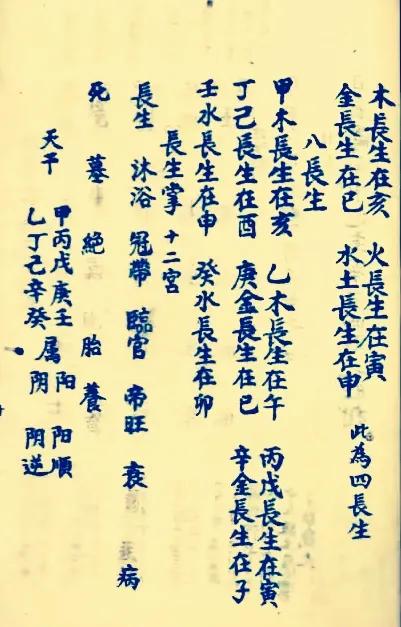 木長生在亥 火長生在寅
金長生在巳 水土長生在申 此為四長生
八長生
甲木長生在亥 乙木長生在午 丙戊長生在寅
丁己長生在酉 庚金長生在巳 辛金長生在子
壬水長生在申 癸水長生在卯
長生掌十二宮
長生 沐浴 冠帶 臨官 帝旺 衰 病
死 墓 絕 胎 養
天干 甲丙戊庚壬屬陽 陽順
乙丁己辛癸阴 阴逆